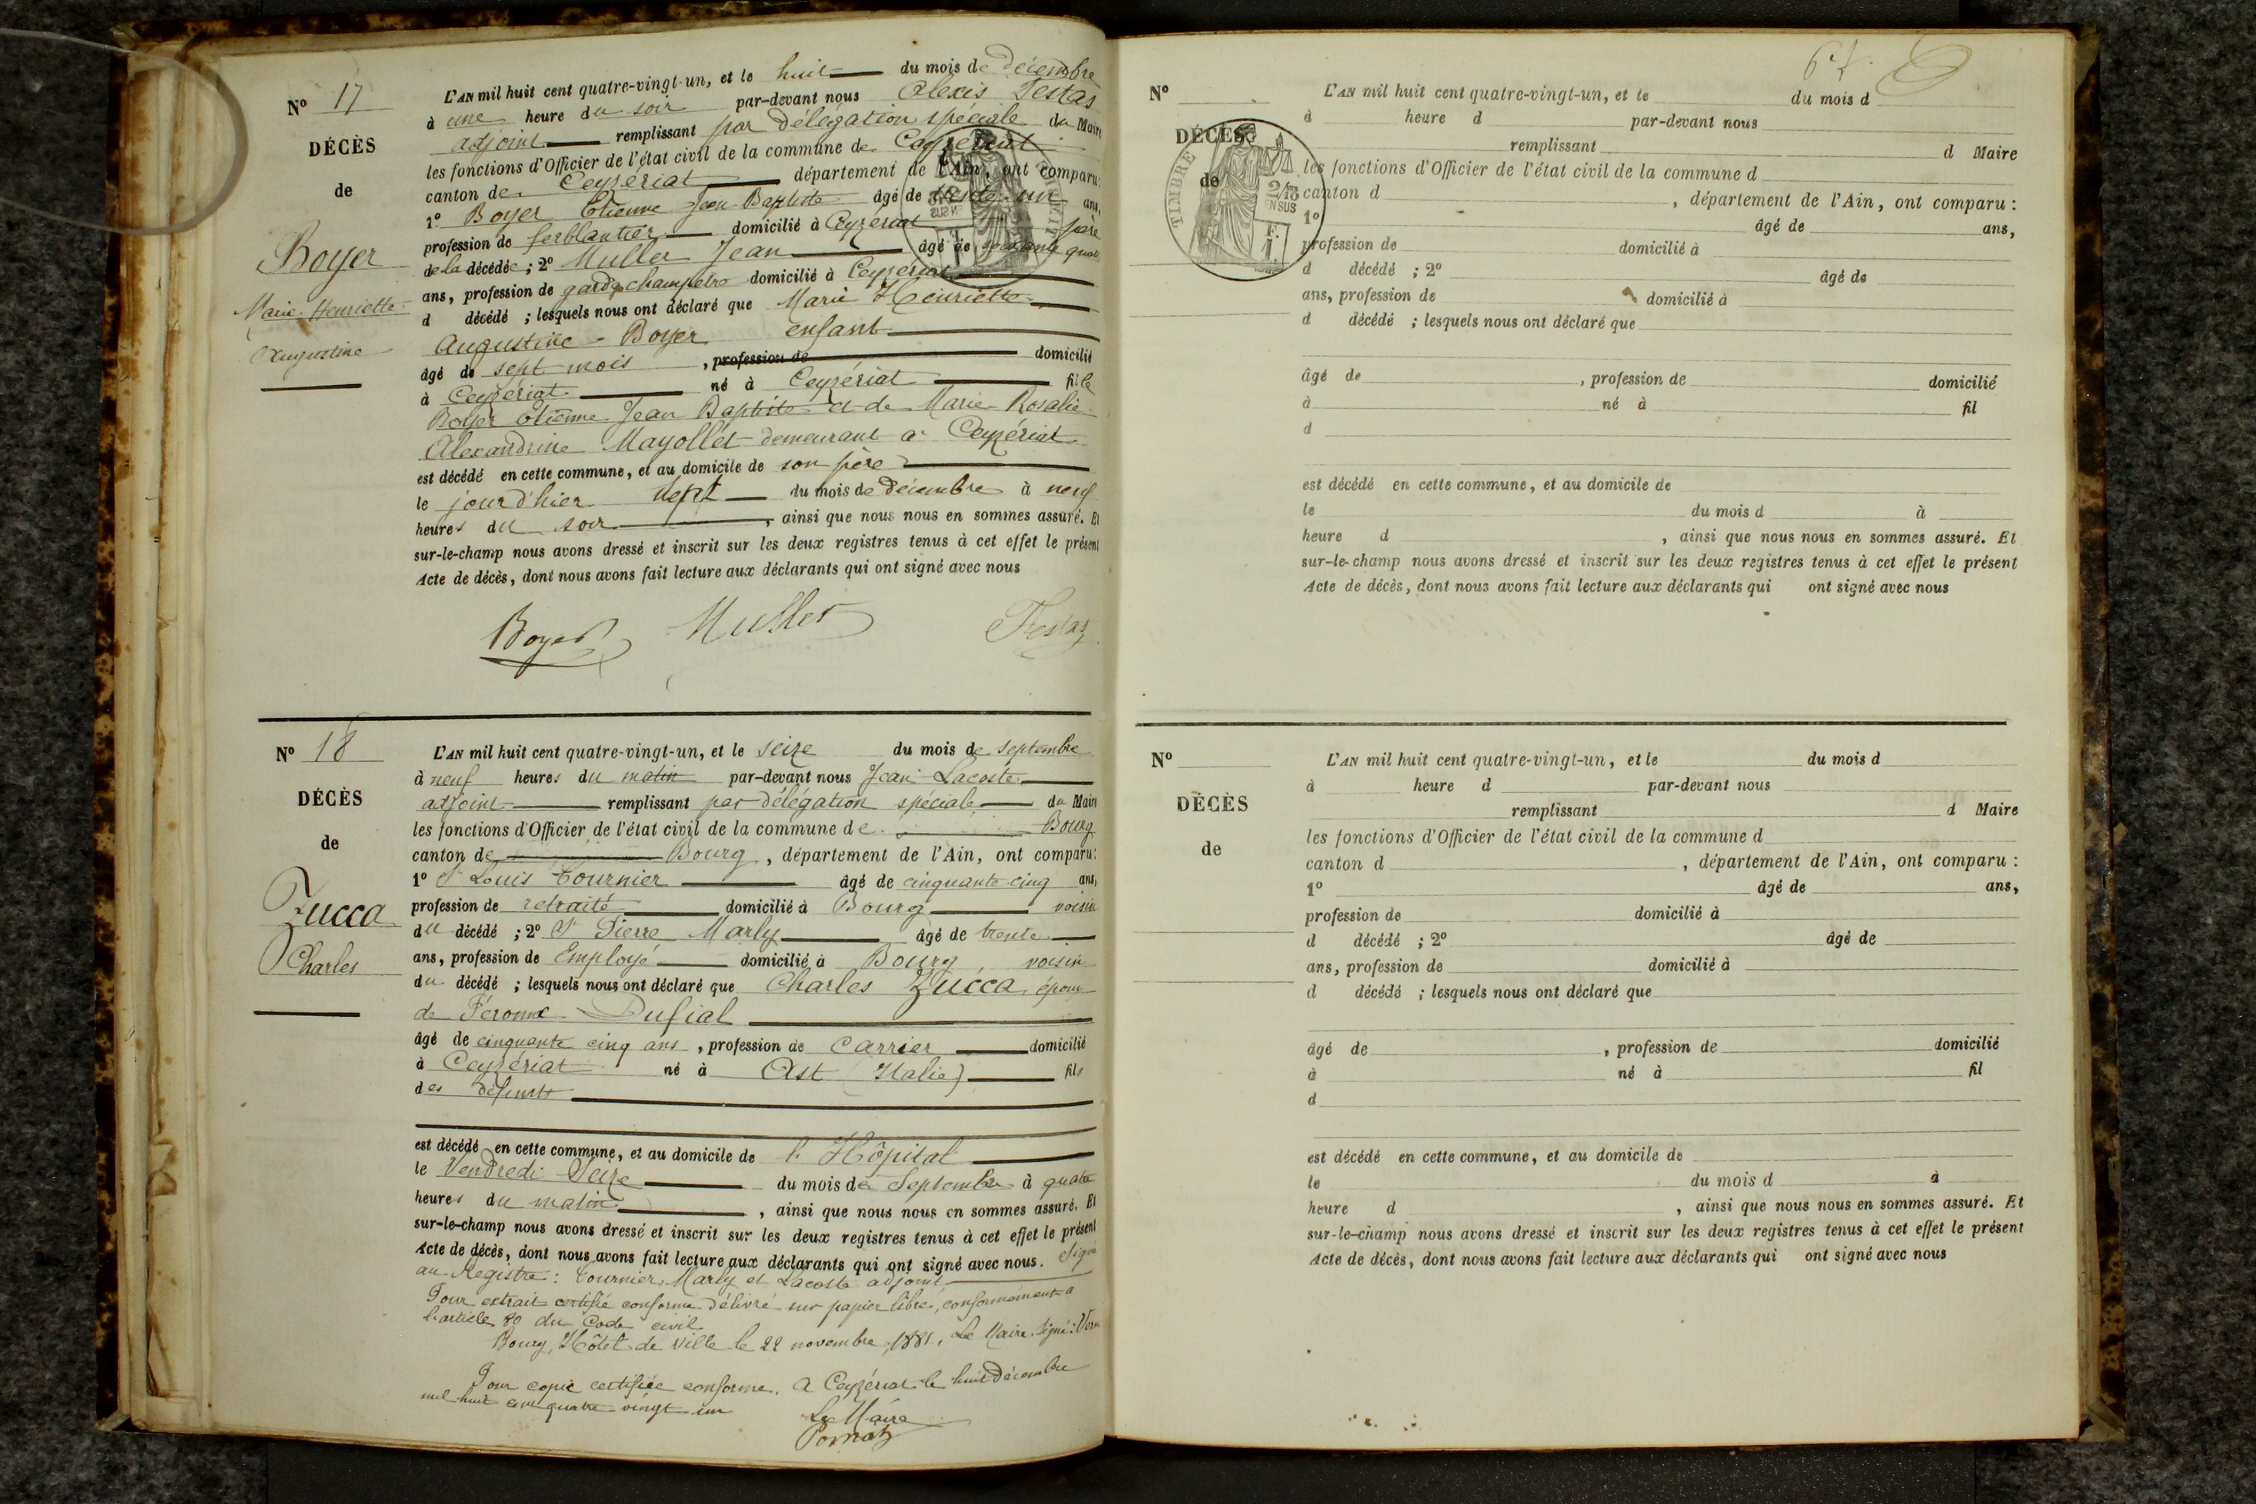 N° 17
DÉCÈS
de
Boyer
Marie Henriette
Augustine
L'AN mil huit cent quatre-vingt-un, et le huit du mois de décembre
à une heure du soir par-devant nous Alexis Testas
adjoint remplissant par délégation spéciale du Maire
les fonctions d'Officier de l'état civil de la commune de Ceyzériat
canton de Ceyzériat département de l'Ain, ont comparu:
1° Boyer Etienne Jean Baptiste âgé de trente-un ans,
profession de ferblantier domicilié à Ceyzériat père
de la décédée ; 2° Muller Jean âgé de soixante quatre
ans, profession de garde champêtre domicilié à Ceyzériat
d décédé ; lesquels nous ont déclaré que Marie Henriette
Augustine Boyer enfant
âgé de sept mois , profession de domicilié
à Ceyzériat né à Ceyzériat fille
Boyer Etienne Jean Baptiste et de Marie Rosalie
Alexandrine Mayollet demeurant à Ceyzériat
est décédé en cette commune, et au domicile de son père
le jour d'hier sept du mois de décembre à neuf
heures du soir , ainsi que nous nous en sommes assuré. Et
sur-le-champ nous avons dressé et inscrit sur les deux registres tenus à cet effet le présent
Acte de décès, dont nous avons fait lecture aux déclarants qui ont signé avec nous
Boyer Muller Testas
N° 18
DÉCÈS
de
Zucca
Charles
L'AN mil huit cent quatre-vingt-un, et le seize du mois de septembre
à neuf heures du matin par-devant nous Jean Lacoste
adjoint remplissant par délégation spéciale du Maire
les fonctions d'Officier de l'état civil de la commune de Bourg
canton de Bourg , département de l'Ain, ont comparu:
1° Sr Louis Tournier âgé de cinquante cinq ans,
profession de retraité domicilié à Bourg voisin
du décédé ; 2° Sr Pierre Marly âgé de trente
ans, profession de Employé domicilié à Bourg voisin
du décédé ; lesquels nous ont déclaré que Charles Zucca époux
de Féronne Dufial
âgé de cinquante cinq ans , profession de carrier domicilié
à Ceyzériat né à Ast (Italie) fils
des défunts
est décédé en cette commune, et au domicile de l'Hôpital
le Vendredi Seize du mois de Septembre à quatre
heures du matin , ainsi que nous nous en sommes assuré. Et
sur-le-champ nous avons dressé et inscrit sur les deux registres tenus à cet effet le présent
Acte de décès, dont nous avons fait lecture aux déclarants qui ont signé avec nous. Signé
au Registre : Tournier, Marly et Lacoste adjoint
Pour extrait certifié conforme délivré sur papier libre, conformément à
l'article 80 du Code civil
Bourg, Hôtel de Ville le 22 novembre 1881, Le Maire Signé :
Pour copie certifiée conforme. A Ceyzériat le huit Décembre
mil huit cent quatre-vingt un
Le Maire
N°
DÉCÈS
de
TIMBRE
L'AN mil huit cent quatre-vingt-un, et le du mois d
à heure d par-devant nous
remplissant d Maire
les fonctions d'Officier de l'état civil de la commune d
canton d , département de l'Ain, ont comparu :
1° âgé de ans,
profession de domicilié à
d décédé ; 2° âgé de
ans, profession de domicilié à
d décédé ; lesquels nous ont déclaré que
âgé de , profession de domicilié
à né à fil
d
est décédé en cette commune, et au domicile de
le du mois d à
heure d , ainsi que nous nous en sommes assuré. Et
sur-le-champ nous avons dressé et inscrit sur les deux registres tenus à cet effet le présent
Acte de décès, dont nous avons fait lecture aux déclarants qui ont signé avec nous
N°
DÉCÈS
de
L'AN mil huit cent quatre-vingt-un, et le du mois d
à heure d par-devant nous
remplissant d Maire
les fonctions d'Officier de l'état civil de la commune d
canton d , département de l'Ain, ont comparu :
1° âgé de ans,
profession de domicilié à
d décédé ; 2° âgé de
ans, profession de domicilié à
d décédé ; lesquels nous ont déclaré que
âgé de , profession de domicilié
à né à fil
d
est décédé en cette commune, et au domicile de
le du mois d à
heure d , ainsi que nous nous en sommes assuré. Et
sur-le-champ nous avons dressé et inscrit sur les deux registres tenus à cet effet le présent
Acte de décès, dont nous avons fait lecture aux déclarants qui ont signé avec nous